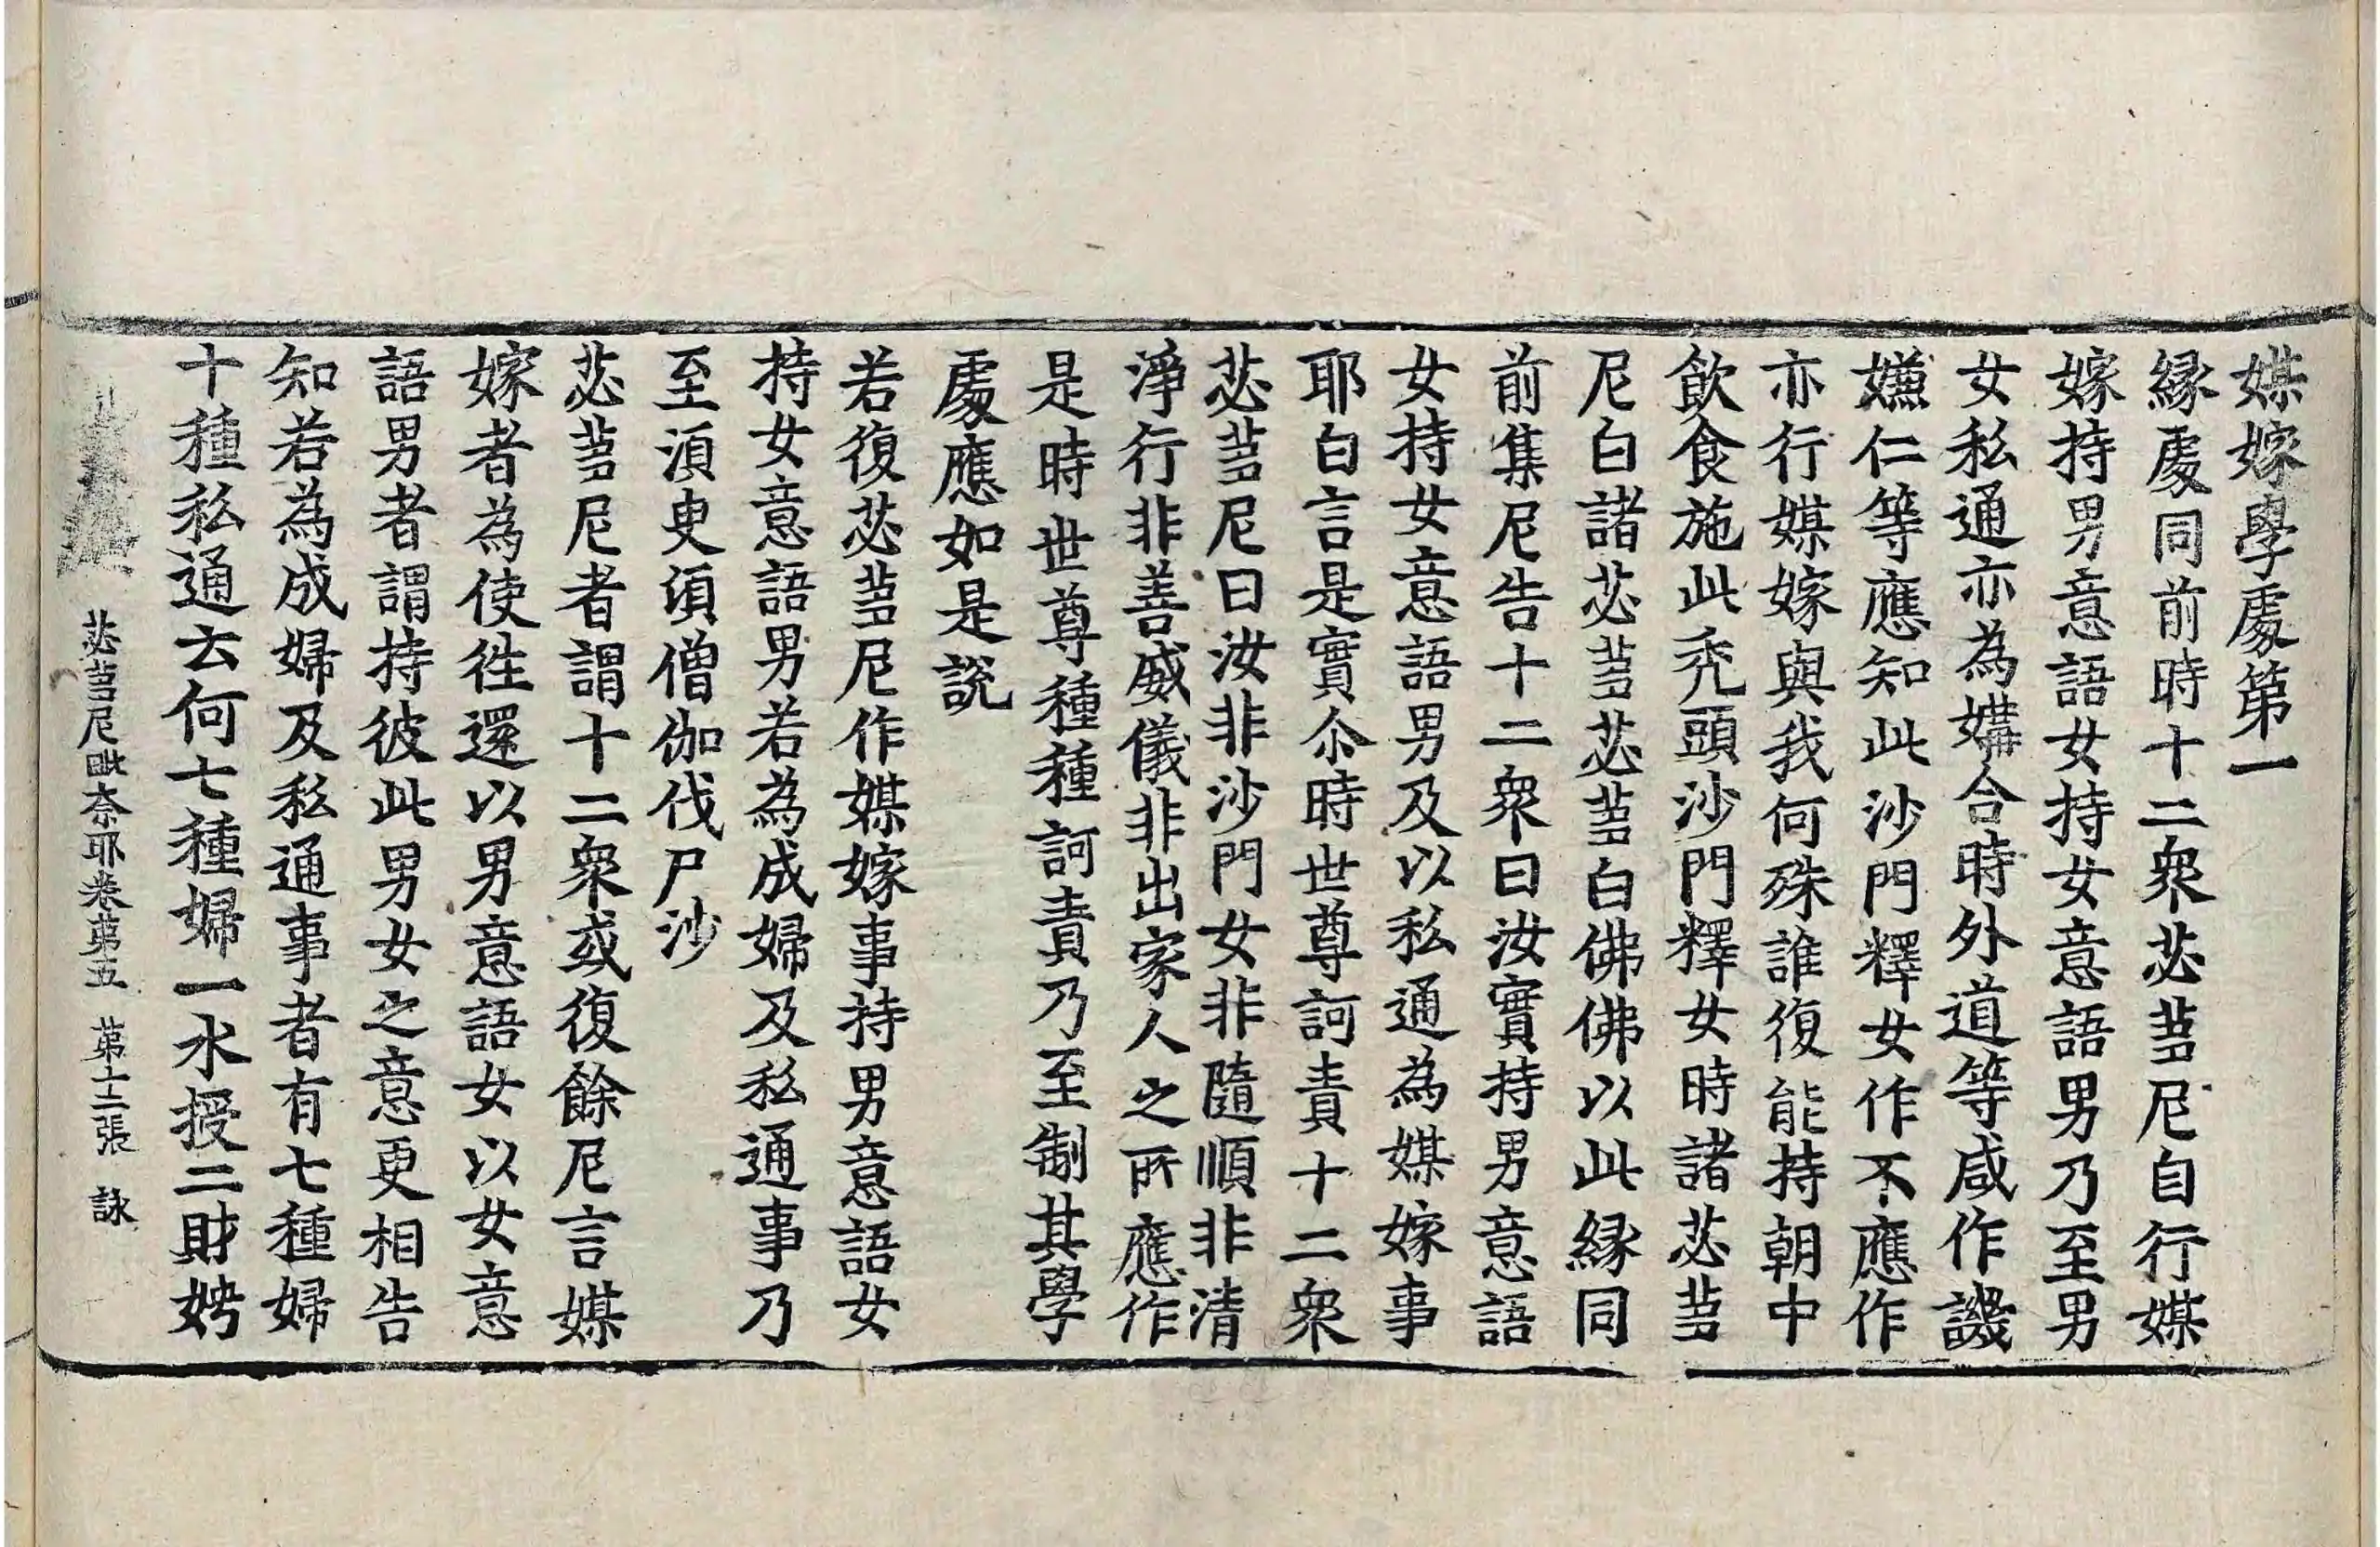 媒嫁學處第一
緣處同前時十二衆苾蒭尼自行媒
嫁持男意語女持女意語男乃至男
女私通亦為媾合時外道等咸作譏
嫌仁等應知此沙門釋女作不應作
亦行媒嫁與我何殊誰復能持朝中
飲食施此禿頭沙門釋女時諸苾蒭
尼白諸苾蒭苾蒭白佛佛以此緣同
前集尼告十二衆曰汝實持男意語
女持女意語男及以私通為媒嫁事
耶白言是實尒時世尊訶責十二衆
苾蒭尼曰汝非沙門女非隨順非清
淨行非善威儀非出家人之所應作
是時世尊種種訶責乃至制其學
處應如是說
若復苾蒭尼作媒嫁事持男意語女
持女意語男若為成婦及私通事乃
至須臾須僧伽伐尸沙
苾蒭尼者謂十二衆或復餘尼言媒
嫁者為使往還以男意語女以女意
語男者謂持彼此男女之意更相告
知若為成婦及私通事者有七種婦
十種私通云何七種婦一水授二財娉
苾蒭尼毗奈耶卷第五 第十二張 詠